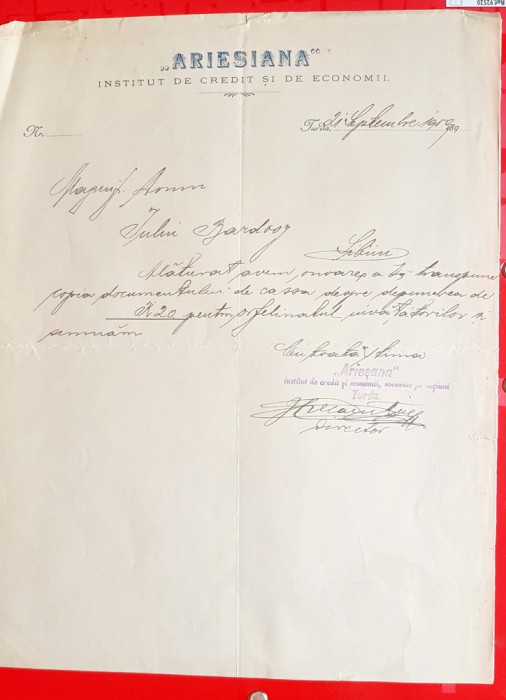 „ARIESIANA“
INSTITUT DE CREDIT ȘI DE ECONOMII.
Nr.
Turda, 21 Septembre 1909 189
Domn
Iuliu Bardosy
Sibiiu
Alăturat avem onoarea a Vă transpune
copia documentului de cassa despre depunerea de
K 20 pentru orfelinatul învățătorilor și
semnăm
Cu toată stima:
„Arieșana“
institut de credit și economii, societate pe acțiuni
Turda
Director